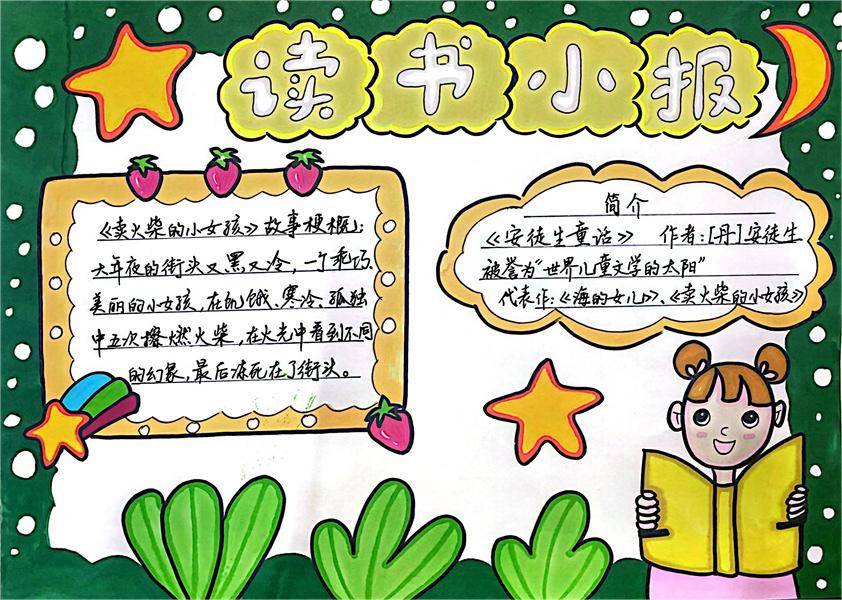 读书小报
《卖火柴的小女孩》故事梗概:
大年夜的街头又黑又冷,一个乖巧、
美丽的小女孩,在饥饿、寒冷、孤独
中五次擦燃火柴,在火光中看到不同
的幻象,最后冻死在了街头。
简介
《安徒生童话》 作者:[丹]安徒生
被誉为"世界儿童文学的太阳"
代表作:《海的女儿》、《卖火柴的小女孩》